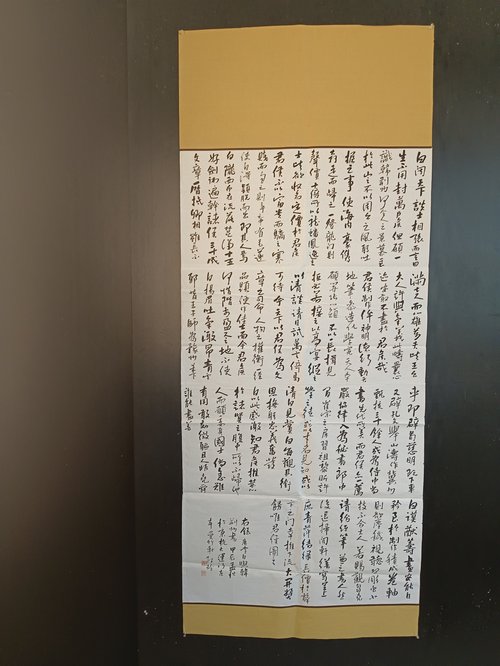 白闻天下談士相聚而言曰
生不用封萬户侯但願一
識韓荆州何令人之景慕一至
於此豈不以周公之風躬吐
握之事使海内豪俊
奔走而歸之一登龍門則
聲價十倍所以龍蟠鳳逸之
士皆欲收名定價於君侯
君侯不以富貴而驕之寒
賤而忽之則三千賓中有毛遂
使白得穎脱而出即其人焉
白隴西布衣流落楚漢十五
好劍術遍幹諸侯三十成
文章歷抵卿相雖長不
滿七尺而心雄萬夫皆王公
大人許與氣義此疇曩心
迹安敢不盡於君侯哉
君侯制作侔神明德行動天
地筆參造化學究天人幸
願開張心顔不以長揖見
拒必若接之以高宴縱之
以清談請日試萬言倚馬
可待今天下以君侯為文
章之司命人物之權衡一經
品題便作佳士而今君侯
何惜階前盈尺之地不使
白揚眉吐氣激昂青雲
耶昔王子師為豫州未下
車即辟荀慈明既下車
又辟孔文舉山濤作冀州
甄拔三十餘人或為侍中尚
書先代所美而君侯亦一薦
嚴協律入為秘書郎中
間崔宗之房習祖黎昕許
瑩之徒或以才名見知或以
清白見賞白每觀其銜
恩撫躬忠義奮發
白以此感激知君侯推赤心
於諸賢之腹中所以不歸他
人而願委身國士倘急難
有用敢效微軀且人非堯舜
誰能盡善
白謨猷籌畫安能自
矜至於制作積成卷軸
則欲塵穢視聽恐雕蟲小
技不合大人若賜觀芻蕘
請給紙筆兼之書人然
後退掃閒軒繕寫呈上
庶青萍結綠長價於薛
卞之門幸推下流大開獎
飾唯君侯圖之
右錄唐李白與韓
荆州書甲辰